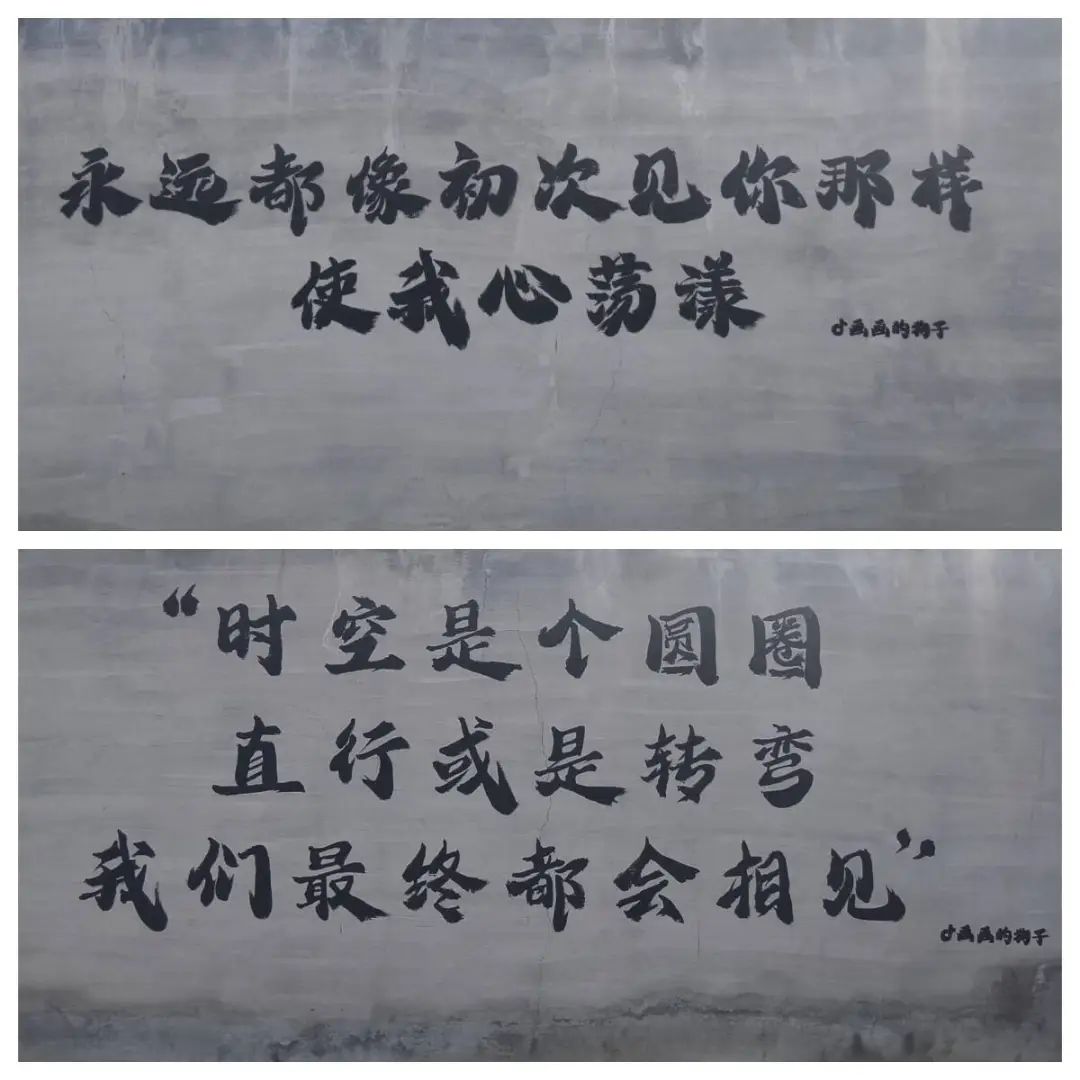 永远都像初次见你那样
使我心荡漾
画画的狗子
“时空是个圆圈
直行或是转弯
我们最终都会相见”
画画的狗子